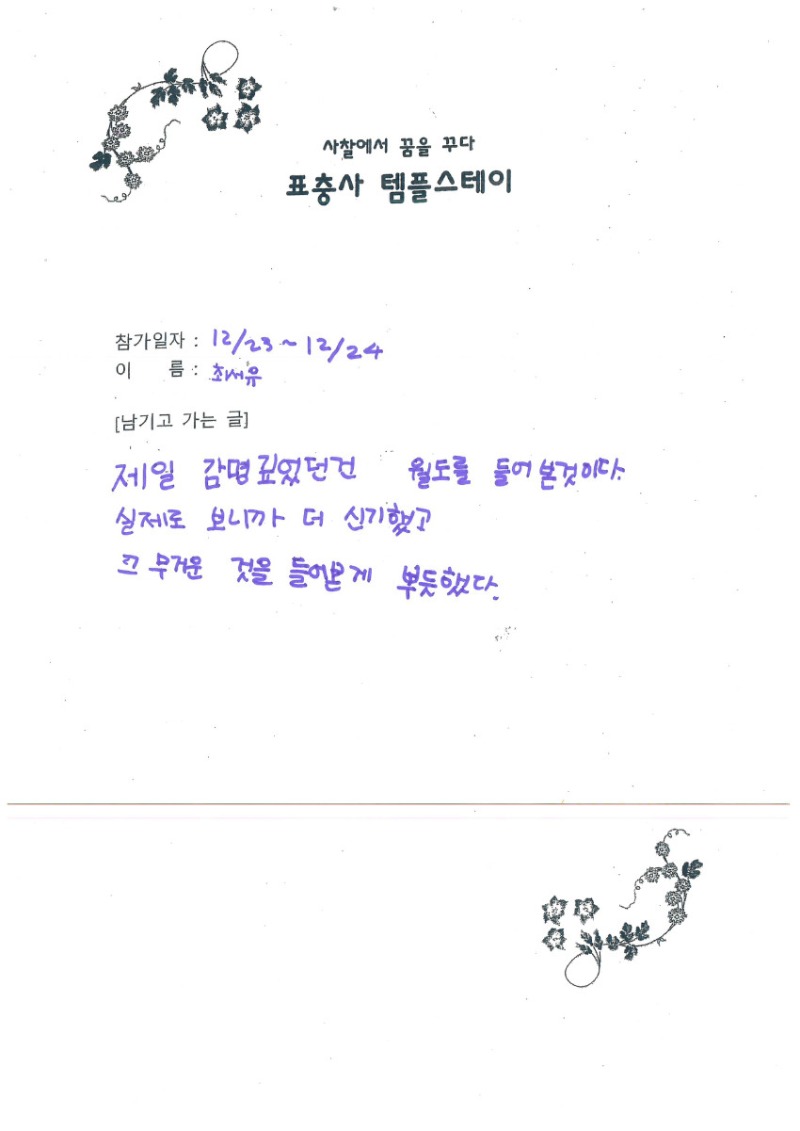 사찰에서 꿈을 꾸다
표충사 템플스테이
참가일자 : 12/23 ~ 12/24
이 름 : 최서유
[남기고 가는 글]
제일 감명깊었던건 월도를 들어본것이다.
실제로 보니까 더 신기했고
그 무거운 것을 들어본게 뿌듯했다.